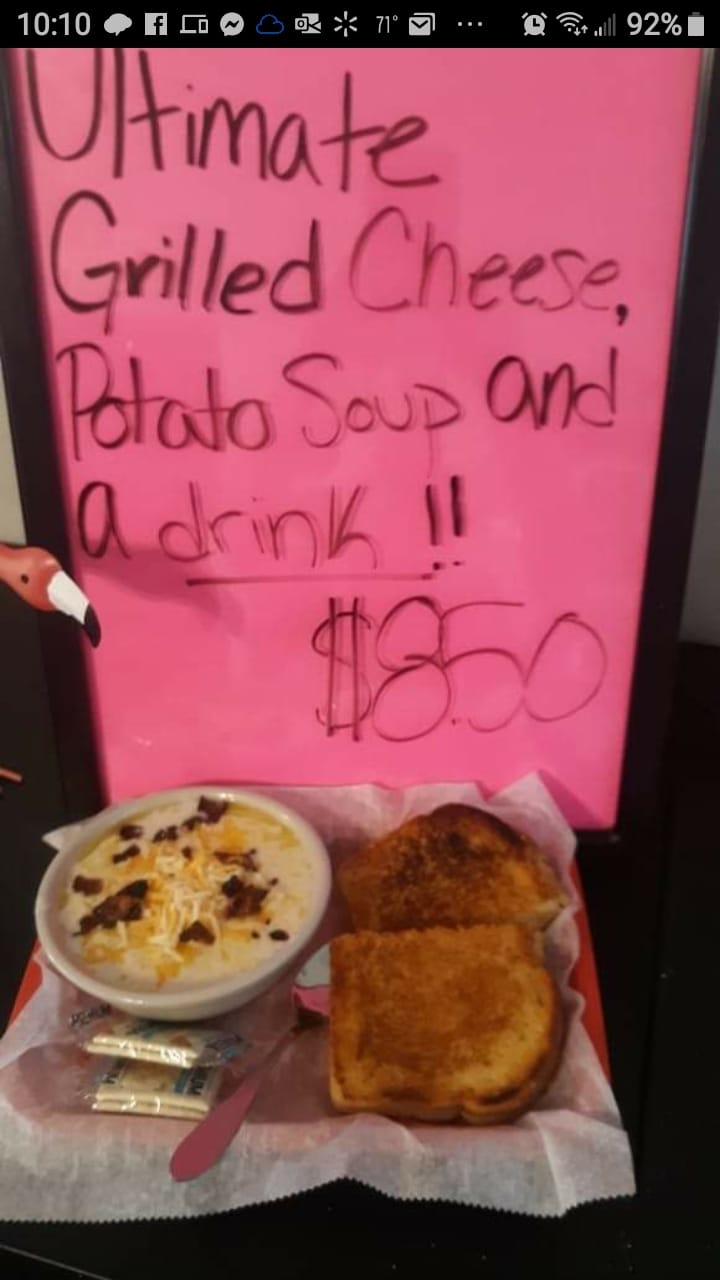 10:10 71° 92%
Ultimate
Grilled Cheese,
Potato Soup and
a drink !!
$8.50